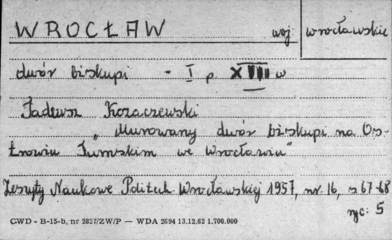 WROCŁAW woj. wrocławskie
dwór biskupi - I p. XIII w
Tadeusz Kozaczewski
"Murowany dwór biskupi na Os-
trowiu Tumskim we Wrocławiu"
Zeszyty Naukowe Politech Wrocławskiej 1957, nr. 16, s 67-68
ryc: 5
GWD - B-15-b, nr 2827/ZW/P — WDA 2694 13.12.62 1.700.000